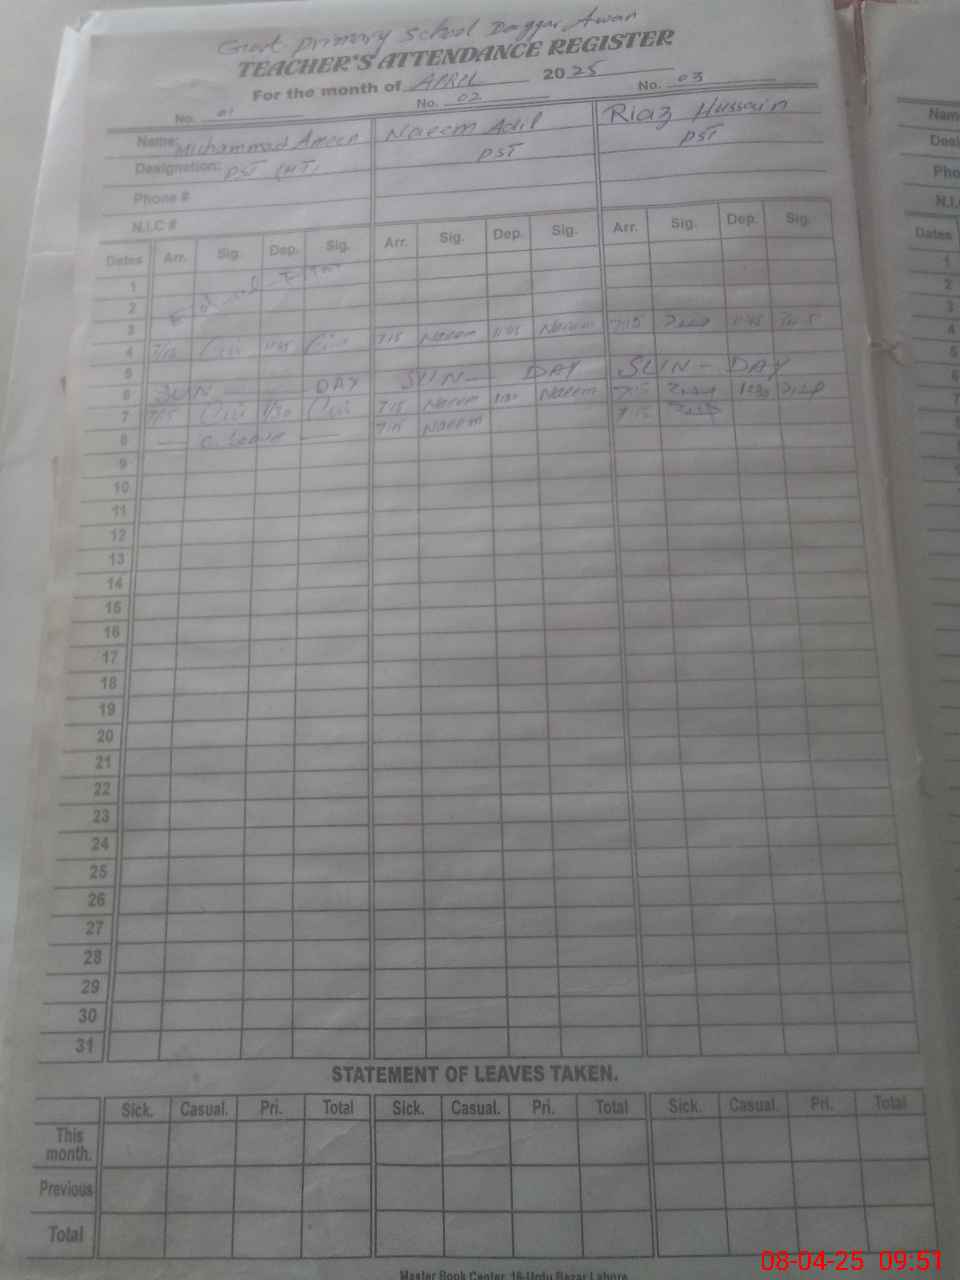 Govt Primary School Daggar Awan
TEACHER'S ATTENDANCE REGISTER
For the month of APRIL 2025
No. 01 No. 02 No. 03
Name: Muhammad Ameen Naeem Adil Riaz Hussain
Designation: PST (HT) PST PST
Phone #
N.I.C #
Dates Arr. Sig. Dep. Sig. Arr. Sig. Dep. Sig. Arr. Sig. Dep. Sig.
1
2
3
4 7/15 11:45 7:15 Naeem 11:45 Naeem 7:15 11:45
5
6 SUN DAY SUN DAY SUN - DAY
7 7/15 1/30 7:15 Naeem 1:30 Naeem 7:15 1:30
8 — C. Leave — 7:15 Naeem 7:15
9
10
11
12
13
14
15
16
17
18
19
20
21
22
23
24
25
26
27
28
29
30
31
STATEMENT OF LEAVES TAKEN.
Sick. Casual. Pri. Total Sick. Casual. Pri. Total Sick. Casual. Pri. Total
This month.
Previous
Total
Master Book Center, 16-Urdu Bazar Lahore
Dates
1
2
3
4
5
08-04-25 09:51